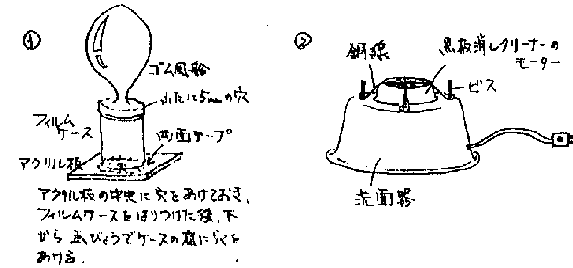 ①
ゴム風船
ふたに5mmの穴
フィルム
ケース
両面テープ
アクリル板
アクリル板の中央に穴をあけておき、
フィルムケースをはりつけた後、下
から画びょうでケースの底に穴を
あける。
②
銅線
黒板消しクリーナーの
モーター
ビス
洗面器